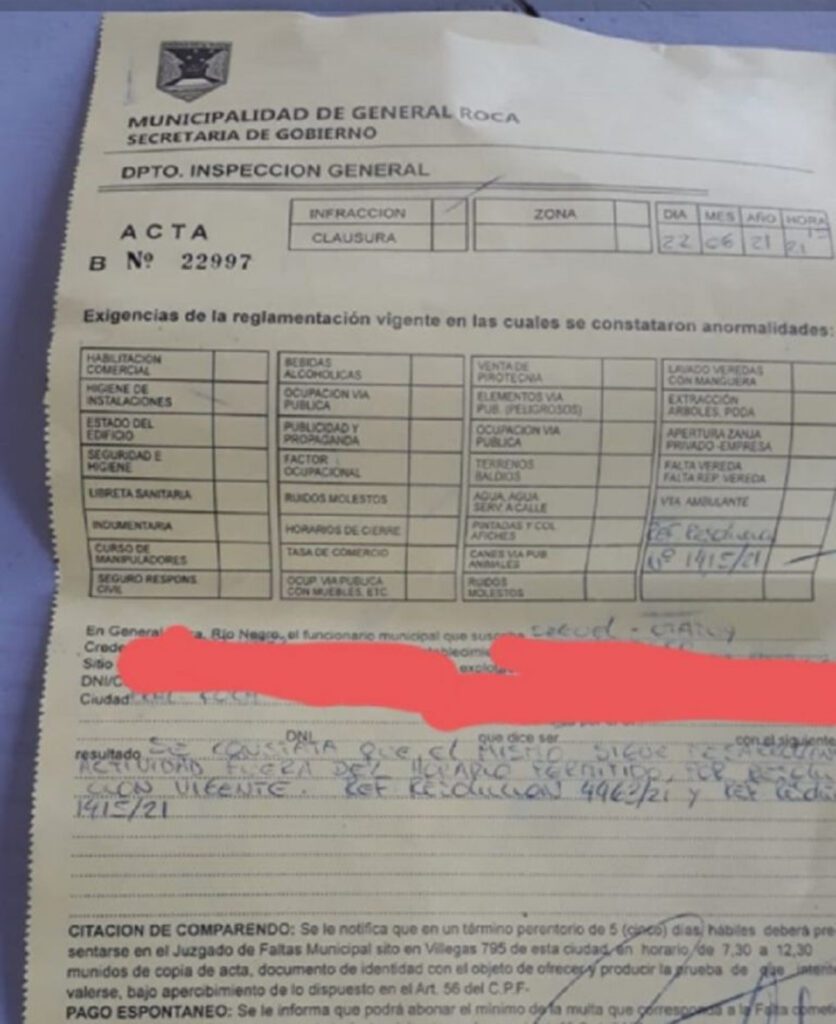 MUNICIPALIDAD DE GENERAL ROCA
SECRETARIA DE GOBIERNO
DPTO. INSPECCION GENERAL
ACTA
B Nº 22997
INFRACCION
CLAUSURA
ZONA
DIA MES AÑO HORA
22 06 21 21
Exigencias de la reglamentación vigente en las cuales se constataron anormalidades:
HABILITACION COMERCIAL
HIGIENE DE INSTALACIONES
ESTADO DEL EDIFICIO
SEGURIDAD E HIGIENE
LIBRETA SANITARIA
INDUMENTARIA
CURSO DE MANIPULADORES
SEGURO RESPONS. CIVIL
BEBIDAS ALCOHOLICAS
OCUPACION VIA PUBLICA
PUBLICIDAD Y PROPAGANDA
FACTOR OCUPACIONAL
RUIDOS MOLESTOS
HORARIOS DE CIERRE
TASA DE COMERCIO
OCUP. VIA PUBLICA CON MUEBLES, ETC.
VENTA DE PIROTECNIA
ELEMENTOS VIA PUB. (PELIGROSOS)
OCUPACION VIA PUBLICA
TERRENOS BALDIOS
AGUA, AGUA SERV. A CALLE
PINTADAS Y COL AFICHES
CANES VIA PUB ANIMALES
RUIDOS MOLESTOS
LAVADO VEREDAS CON MANGUERA
EXTRACCIÓN ARBOLES, PODA
APERTURA ZANJA PRIVADO -EMPRESA
FALTA VEREDA FALTA REP. VEREDA
VTA AMBULANTE
REF
Nº 1415/21
En General Río Negro, el funcionario municipal que
Sitio
Ciudad
DNI que dice ser con el siguiente
resultado SE CONSTATA QUE EL MISMO SIGUE
ACTIVIDAD FUERA DEL HORARIO PERMITIDO, POR
CION VIGENTE. REF RESOLUCION Y REF
1415/21
CITACION DE COMPARENDO: Se le notifica que en un término perentorio de 5 (cinco) días, hábiles deberá pre-
sentarse en el Juzgado de Faltas Municipal sito en Villegas 795 de esta ciudad, en horario, de 7,30 a 12,30
munidos de copia de acta, documento de identidad con el objeto de ofrecer y producir la prueba de que
valerse, bajo apercibimiento de lo dispuesto en el Art. 56 del C.P.F-
PAGO ESPONTANEO: Se le informa que podrá abonar el mínimo de la multa que corresponda a la Falta